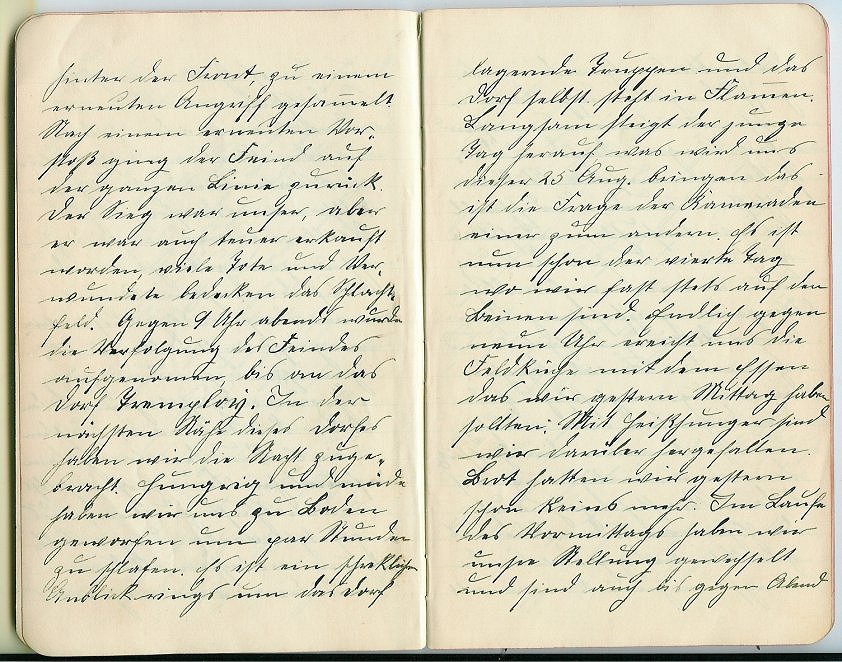 hinter der Front, zu einem
erneuten Angriff gesam̅elt.
Nach einem erneuten Vor-
stoß ging der Feind auf
der ganzen Linie zurück.
Der Sieg war unser, aber
er war auch teuer erkauft
worden, viele Tote und Ver-
wundete bedecken das Schlacht-
feld. Gegen 9 Uhr abends wurde
die Verfolgung des Feindes
aufgenomen, bis an das
Dorf Tremploy. In der
nächsten Nähe dieses Dorfes
haben wir die Nacht zuge-
bracht. Hungrig und müde
haben wir uns zu Boden
geworfen um par Stunden
zu schlafen. Es ist ein schreklicher
Anblick rings um das Dorf
lagernde Truppen und das
Dorf selbst steht in Flamen.
Langsam steigt der junge
Tag herauf was wird uns
dieser 25 Aug. bringen das
ist die Frage der Kameraden
einer zum andern. Es ist
nun schon der vierte Tag
wo wir fast stets auf den
Beinen sind. Endlich gegen
neun Uhr ereicht uns die
Feldküche mit dem Essen
das wir gestern Mittag haben
sollten. Mit Heißhunger sind
wir darüber hergefallen.
Brot hatten wir gestern
schon keins mehr. Im Laufe
des Vormittags haben wir
unsre Stellung gewechselt
und sind auch bis gegen Abend